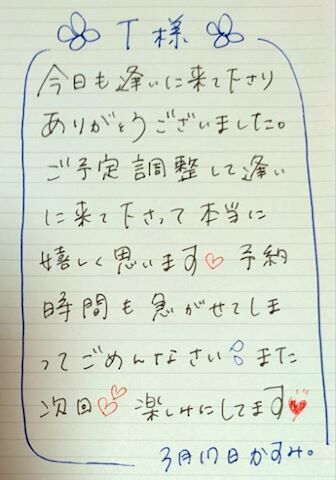 T 様
今日も逢いに来て下さり
ありがとうございました。
ご予定調整して逢い
に来て下さって本当に
嬉しく思います♡ 予約
時間も急がせてしま
ってごめんなさい また
次回♡♡ 楽しみにしてます♡
3月17日かすみ。